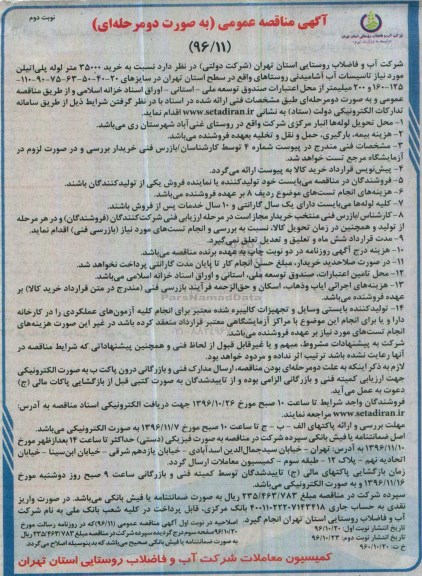 نوبت دوم
آگهی مناقصه عمومی (به صورت دومرحله‌ای)
(۹۶/۱۱)
شرکت آب و فاضلاب روستایی استان تهران (شرکت دولتی) در نظر دارد نسبت به خرید ۳۵۰۰۰ متر لوله پلی‌اتیلن
مورد نیاز تاسیسات آب آشامیدنی روستاهای واقع در سطح استان تهران در سایزهای ۲۰-۴۰-۵۰-۶۳-۷۵-۹۰-۱۱۰-
۱۲۵-۱۶۰ و ۲۰۰ میلیمتر از محل اعتبارات صندوق توسعه ملی - استانی - اوراق اسناد خزانه اسلامی و از طریق مناقصه
عمومی و به صورت دومرحله‌ای طبق مشخصات فنی ارائه شده در اسناد با در نظر گرفتن شرایط ذیل از طریق سامانه
تدارکات الکترونیکی دولت (ستاد) به نشانی www.setadiran.ir اقدام نماید.
۱- محل تحویل لوله‌ها انبار مرکزی شرکت واقع در روستای غنی آباد شهرستان ری می‌باشد.
۲- هزینه بیمه، بارگیری، حمل و نقل و تخلیه بعهده فروشنده می‌باشد.
۳- مشخصات فنی مندرج در پیوست شماره ۴ توسط کارشناسان/بازرس فنی خریدار بررسی و در صورت لزوم در
آزمایشگاه مرجع تست خواهد شد.
۴- پیش‌نویس قرارداد خرید کالا به پیوست ارائه می‌گردد.
۵- فروشندگان در مناقصه می‌بایست خود تولیدکننده یا نماینده فروش یکی از تولیدکنندگان باشند.
۶- هزینه‌های انجام تست‌های موضوع ردیف ۸ بر عهده فروشنده می‌باشد.
۷- کلیه لوله‌ها می‌بایست دارای یک سال گارانتی و ۱۰ سال خدمات پس از فروش باشند.
۸- کارشناس/بازرس فنی منتخب خریدار مجاز است در مرحله ارزیابی فنی شرکت‌کنندگان (فروشندگان) و در هر مرحله
از تولید و همچنین در زمان تحویل کالا، نسبت به بررسی و انجام تست‌های مورد نیاز (بازرسی فنی) اقدام نماید.
۹- مدت قرارداد شش ماه و تعلیق و تعدیل تعلق نمی‌گیرد.
۱۰- هزینه درج آگهی روزنامه در دو نوبت چاپ به عهده برنده مناقصه می‌باشد.
۱۱- در صورت صلاحدید خریدار، مبلغ حسن انجام کار تا پایان مدت گارانتی پرداخت نخواهد شد.
۱۲- محل تامین اعتبارات، صندوق توسعه ملی، استانی و اوراق اسناد خزانه اسلامی می‌باشد.
۱۳- هزینه‌های اجرائی ایاب وذهاب، اسکان و حق‌الزحمه فرآیند بازرسی فنی (مندرج در متن قرارداد خرید کالا) بر
عهده فروشنده می‌باشد.
۱۴- تولیدکننده بایستی وسایل و تجهیزات کالیبره شده معتبر برای انجام کلیه آزمون‌های عملکردی را در کارخانه
دارا و یا برای انجام این موضوع با مراکز آزمایشگاهی معتبر قرارداد منعقد کرده باشد در غیر این صورت هزینه‌های
انجام تست‌های مورد نیاز بر عهده فروشنده می‌باشد.
شرکت به پیشنهادات مشروط، مبهم و یا غیرقابل قبول از لحاظ فنی و همچنین پیشنهاداتی که شرایط مناقصه در
آنها رعایت نشده باشد ترتیب اثر نداده و مردود خواهد بود.
لازم به ذکر اینکه به علت دومرحله‌ای بودن مناقصه، ارسال مدارک فنی و بازرگانی درون پاکت ب به صورت الکترونیکی
جهت ارزیابی کمیته فنی و بازرگانی الزامی بوده و از تاییدشدگان به صورت کتبی قبل از بازگشایی پاکات مالی (ج)
دعوت به عمل می‌آید.
فروشندگان واجد شرایط تا ساعت ۱۰ صبح مورخ ۱۳۹۶/۱۰/۲۶ جهت دریافت الکترونیکی اسناد مناقصه به آدرس:
www.setadiran.ir مراجعه نمایند.
مهلت بررسی و ارائه پاکتهای الف - ب - ج تا ساعت ۱۰ صبح مورخ ۱۳۹۶/۱۱/۷ به صورت الکترونیکی می‌باشد.
اصل ضمانتنامه یا فیش بانکی سپرده شرکت در مناقصه به صورت فیزیکی (دستی) حداکثر تا ساعت ۱۴ بعدازظهر مورخ
۱۳۹۶/۱۱/۱۰ به آدرس: تهران - خیابان سیدجمال‌الدین اسدآبادی - یازدهم شرقی - خیابان ابن‌سینا - خیابان
اتحادیه نهم - پلاک ۱۲ - طبقه سوم - کمیسیون معاملات ارسال گردد.
زمان بازگشایی پاکتهای مالی (ج) تاییدشدگان توسط کمیته فنی و بازرگانی ساعت ۹ صبح روز دوشنبه مورخ
۱۳۹۶/۱۱/۱۶ می‌باشد.
سپرده شرکت در مناقصه مبلغ ۲۳۵/۴۶۳/۷۸۳ ریال به صورت ضمانتنامه یا فیش بانکی می‌باشد. در صورت واریز
آب و فاضلاب روستایی استان تهران انجام گیرد.
تاریخ انتشار نوبت اول: ۹۶/۱۰/۲۰
تاریخ انتشار نوبت دوم:
خ ت: ۹۶/۱۰/۲۰
کمیسیون معاملات شرکت آب و فاضلاب روستایی استان تهران